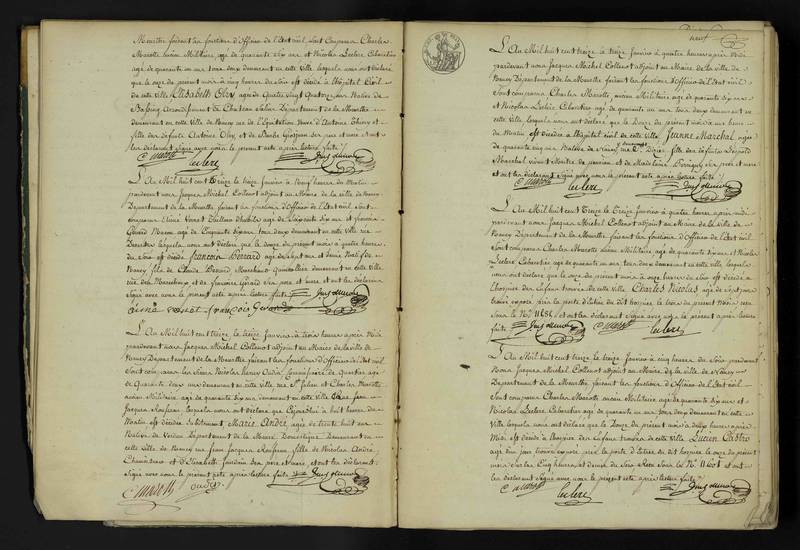 Meurthe faisant les fonctions d'Officier de l'Etat civil, sont comparus Charles
Marotte ancien Militaire agé de quarante dix ans et Nicolas Leclere Cabaretier
agé de quarante un ans tous deux demeurant en cette Ville lesquels nous ont déclaré
que le onze du présent mois à cinq heures du soir est décédé à l'hôpital Civil
de cette ville Elisabeth Oby agée de Quatre vingt Quatorze ans Native de
arrondissement de Chateau Salin Département de la Meurthe
demeurant en cette Ville de Nancy rue de l'Equitation Veuve d'Antoine Thiery et
fille des défunts Antoine Oby et de Barbe ses père et mère et ont
les déclarants signé avec nous le présent acte après lecture faite.
C marotte leclere
L'An Mil huit cent treize le treize Janvier à Neuf heures du Matin
pardevant nous Jacques Michel Collenot adjoint au Maire de la ville de Nancy
Département de la Meurthe faisant les fonctions d'Officier de l'Etat civil sont
comparus agé de soixante dix ans et François
Girard agé de Cinquante dix ans tous deux demeurant en cette Ville rue
lesquels nous ont déclaré que le douze du présent mois à quatre heures
du Soir est décédé François Bernard agé de sept ans et demi Natif de
Nancy fils de Claude Bernard Marchand Quincaillier demeurant en cette Ville
rue des et de Françoise Girard ses père et mère et ont les déclarans
signé avec nous le présent acte après lecture faite
aimé vonet françois girard
L'An Mil huit cent treize le treize Janvier à trois heures après Midi
pardevant nous Jacques Michel Collenot adjoint au Maire de la ville de
Nancy Département de la Meurthe faisant les fonctions d'Officier de l'Etat civil
sont comparus les Sieurs Nicolas henry Oudin Commissaire de Quartier agé
de Quarante deux ans demeurant en cette ville rue St Julien et Charles Marotte
ancien Militaire agé de quarante dix ans demeurant en cette Ville Rue Jean
Jacques Rousseau lesquels nous ont déclaré que Cejourd'hui à huit heures du
Matin est décédée subitement Marie André, agée de trente huit ans
Native de Verdun Département de la Meuse Domestique Demeurant en
cette ville de Nancy rue Jean Jacques Rousseau fille de Nicolas André
et d'Elisabeth ses père et mère, et ont les déclarans
signé avec nous le présent acte après lecture faite
C marotte oudin
neuf
L'An Mil huit cent treize le treize Janvier à quatre heures après Midi
pardevant nous Jacques Michel Collenot adjoint au Maire de la Ville de
Nancy Département de la Meurthe faisant les fonctions d'Officier de l'Etat civil
sont comparus Charles Marotte, ancien Militaire agé de quarante dix ans
et Nicolas Leclere Cabaretier agé de quarante un ans tous deux demeurant en cette
Ville lesquels nous ont déclaré que le Douze du présent mois à une heure
du Matin est décédée à l'hôpital civil de cette ville Jeanne Marchal agée
de quarante cinq ans Native de Nancy fille des défunts
Marchal vivant Maitre de pension et de Madelaine ses père et mère
et ont les déclarans signé avec nous le présent acte après lecture faite
C marotte leclere
L'An Mil huit cent Treize le Treize Janvier à quatre heures après midi
pardevant nous Jacques Michel Collenot adjoint au Maire de la Ville de
Nancy Département de la Meurthe faisant les fonctions d'Officier de l'Etat civil
sont comparus Charles Marotte ancien Militaire agé de quarante dix ans et Nicolas
Leclere Cabaretier agé de quarante un ans tous deux demeurant en cette ville, lesquels
nous ont déclaré que le onze du présent mois à onze heures du soir est décédé à
l'hospice des Enfans trouvés de cette Ville Charles Nicolas agé de
trouvé exposé près la porte d'entrée du dit hospice le trois du présent mois
sous le No 11686 et ont les déclarans signé avec nous le présent acte après lecture
faite
C marotte leclere
L'An Mil huit cent treize le treize Janvier à cinq heures du Soir pardevant
Nous Jacques Michel Collenot adjoint au Maire de la ville de Nancy
Département de la Meurthe faisant les fonctions d'Officier de l'Etat civil
sont comparus Charles Marotte ancien Militaire agé de quarante dix ans et
Nicolas Leclere Cabaretier agé de quarante un ans tous deux demeurant en cette
Ville lesquels nous ont déclaré que le Douze du présent mois à deux heures après
Midi est décédé à l'hospice des Enfans trouvés de cette Ville Lucien Castro
agé d'un jour trouvé exposé près la porte d'entrée du dit hospice le onze du présent
mois vers les Cinq heures et demie du Soir sous le No 11601 et ont
les déclarans signé avec nous le présent acte après lecture faite
C marotte leclere